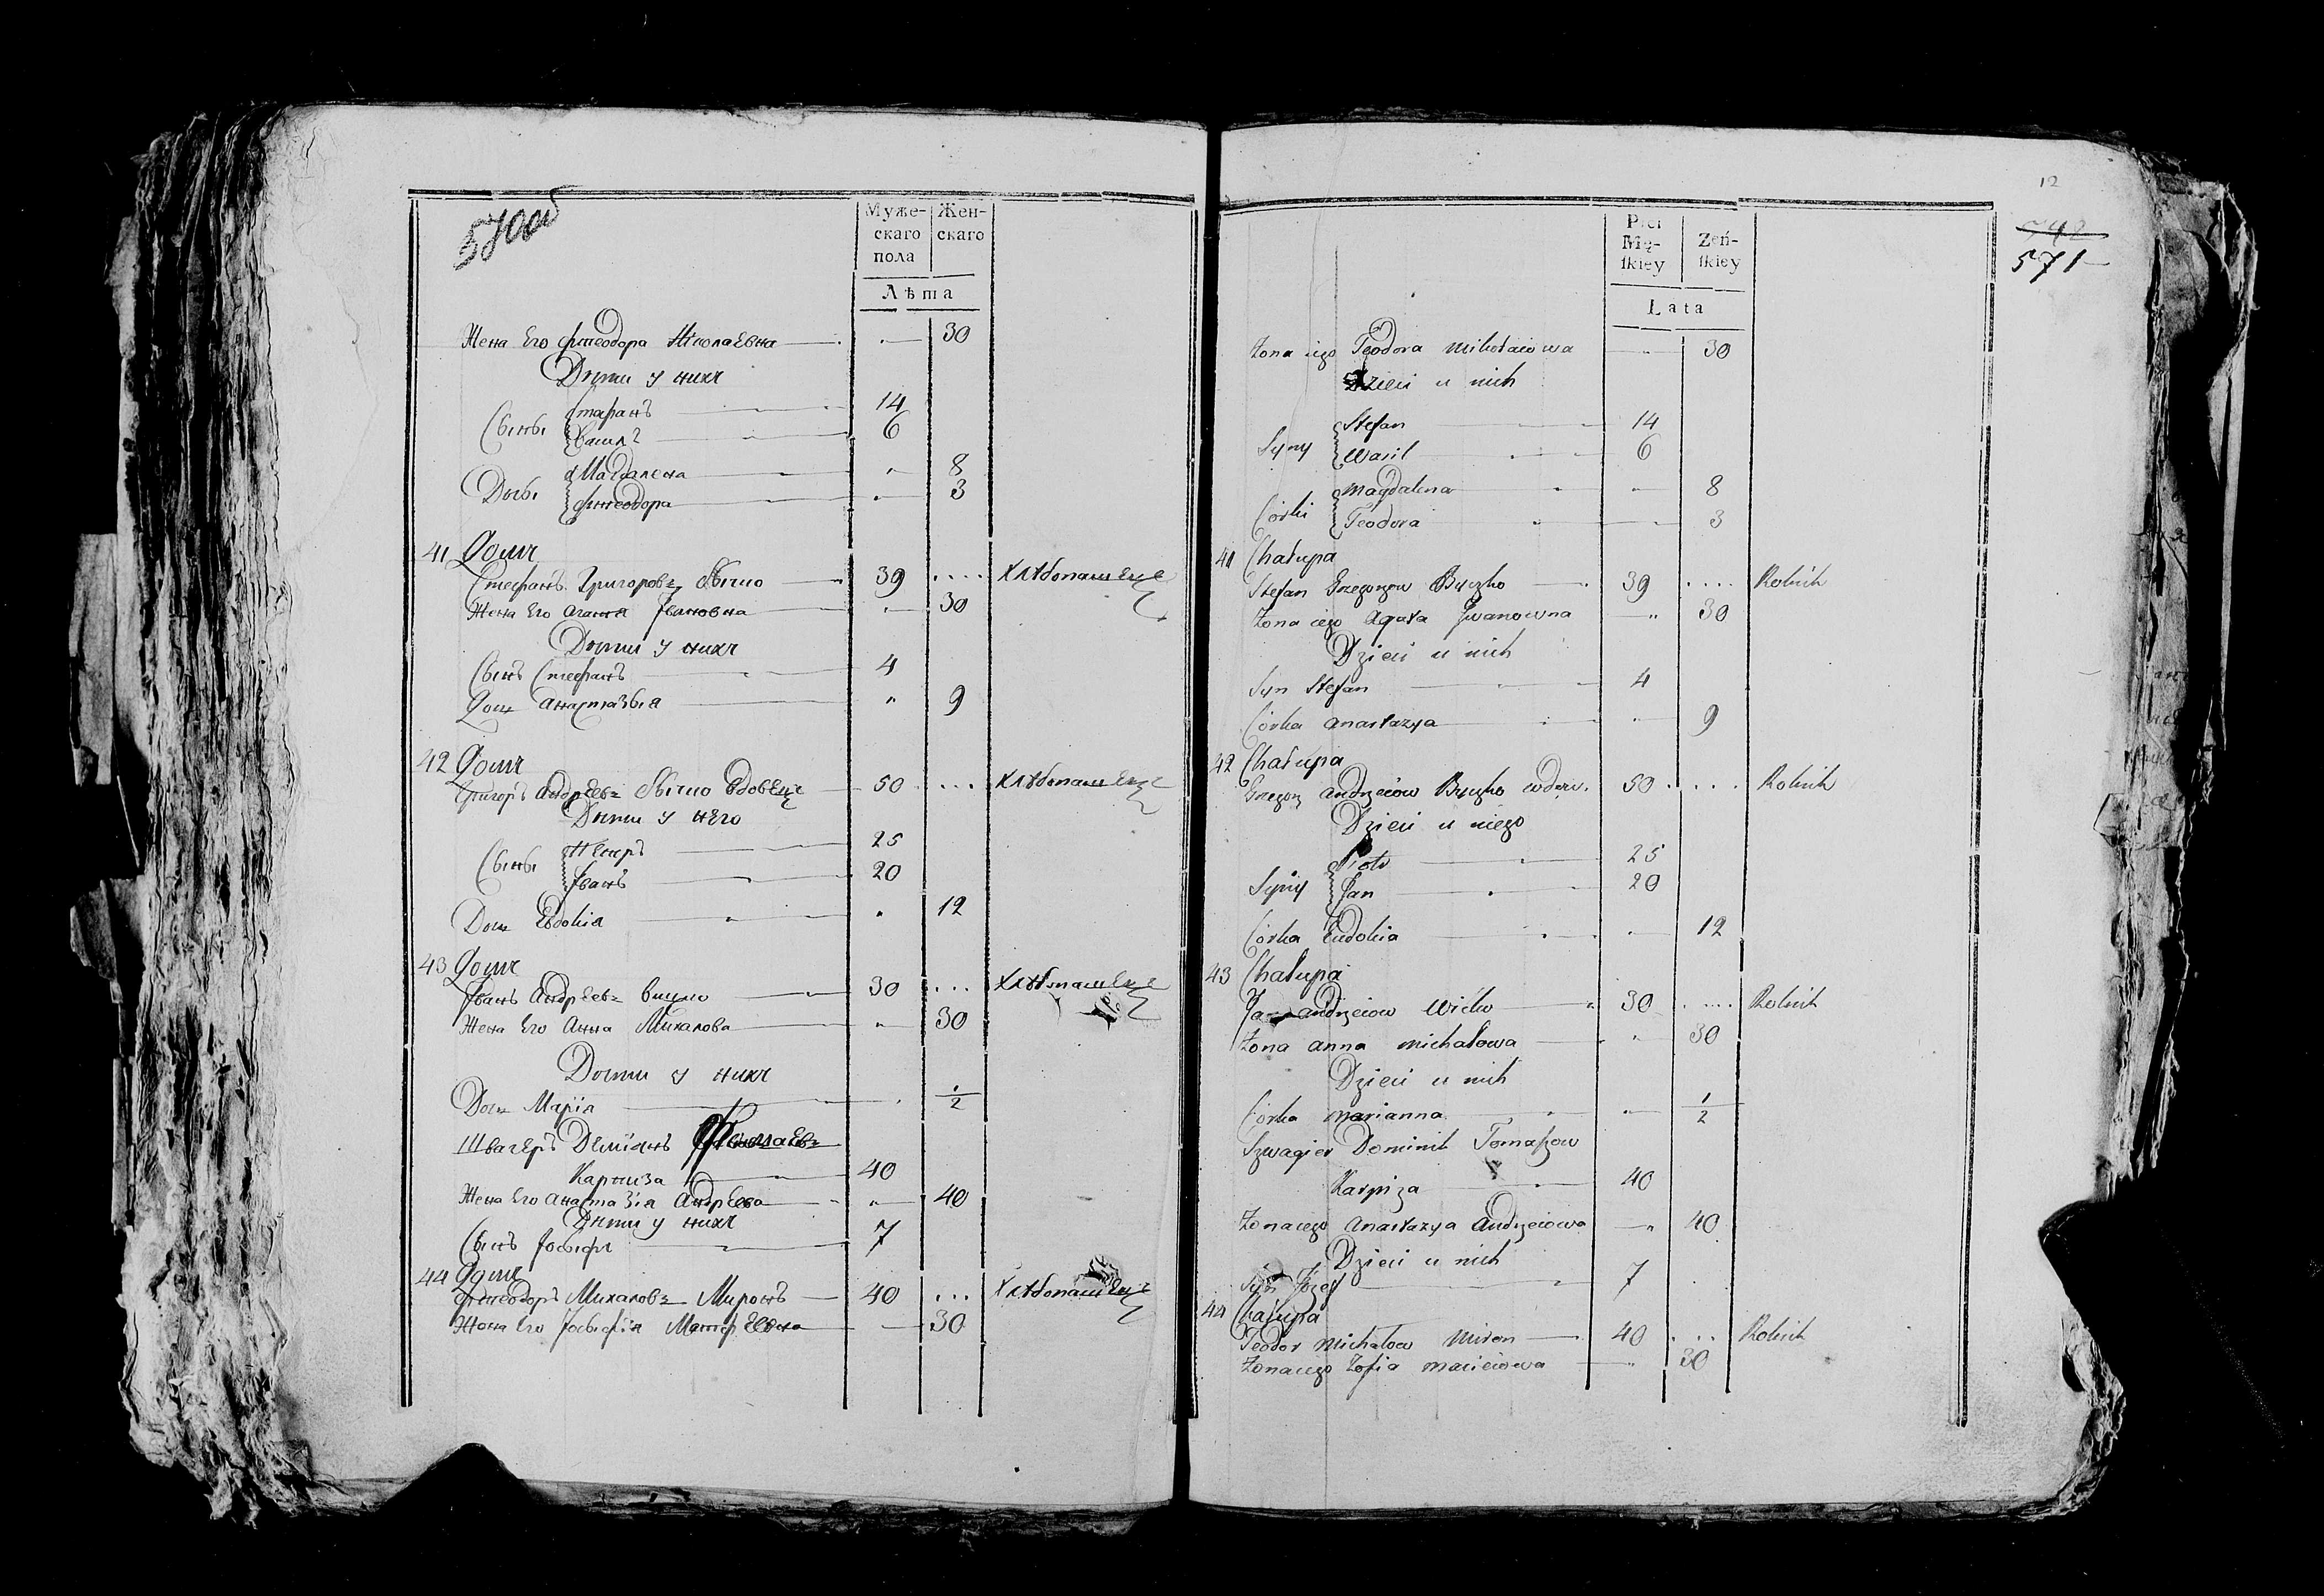 570об
Муже-
скаго
пола
Жен-
скаго
Лѣта
Жена Его Фтеодора Николаевна 30
Дѣти у нихъ
Стефанъ 14
Сыны
Василь 6
Магдалена 8
Дочы
Фтеодора 3
41 Домъ
Стефанъ Григоровъ Бычко 39 .... Хлѣбопашецъ
Жена Его Агата Івановна 30
Дѣти у нихъ
Сынъ Стефанъ 4
Дочь Анастазыя 9
42 Домъ
Григоръ Андреевъ Бычко Вдовецъ 50 ... Хлѣбопашецъ
Дѣти у него
Петръ 25
Сыны
Іванъ 20
Дочь Евдокія 12
43 Домъ
Іванъ Андреевъ 30 ... Хлѣбопашецъ
Жена Его Анна Михалова 30
Дѣти у нихъ
Дочь Марія 1/2
Швагеръ Деміянъ
Карпиза 40
Жена Его Анастазія Андреева 40
Дѣти у нихъ
Сынъ Іосыфъ 7
44 Домъ
Фтеодоръ Михаловъ Миронъ 40 ... Хлѣбопашецъ
Жена Его 30
12
742
571
Płci
Mę-
ſkiey
Żeń-
ſkiey
Lata
Żona iego Teodora Mikołaiowa 30
Dzieci u nich
Stefan 14
Syny
Wasil 6
Magdalena 8
Corki
Teodora 3
41 Chałupa
Stefan Grzegorzow Byczko 39 .... Rolnik
Żona iego Agata Jwanowna 30
Dzieci u nich
Syn Stefan 4
Córka Anastazya 9
42 Chałupa
Grzegorz Andrzeiow Byczko wdow. 50 .... Rolnik
Dzieci u niego
Piotr 25
Syny
Jan 20
Córka Eudokia 12
43 Chałupa
Andrzeiow 30 .... Rolnik
Żona Anna Michałowa 30
Dzieci u nich
Córka Marianna 1/2
Szwagier Dominik Tomaſzow
Karpiza 40
Żona iego Anastazya Andrzeiowa 40
Dzieci u nich
Syn Józef 7
44 Chałupa
Teodor Michałow Miron 40 ... Rolnik
Żona iego Zofia Macieiowa 30